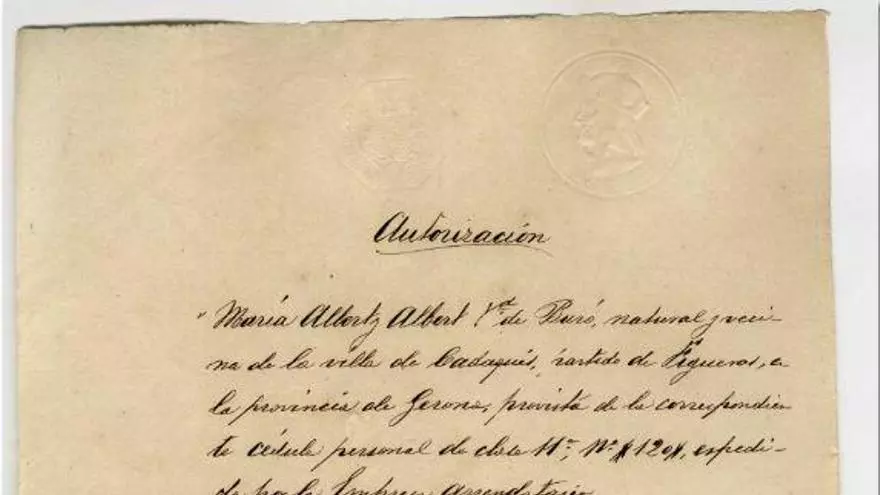 Autorización
" María Albert y Albert Vda de Buró, natural y veci-
na de la villa de Cadaqués, partido de Figueras, e
la provincia de Gerona, provista de la correspondien
te cédula personal de clase 11ª, Nº 120, expedi-
da por la Empresa Arrendataria